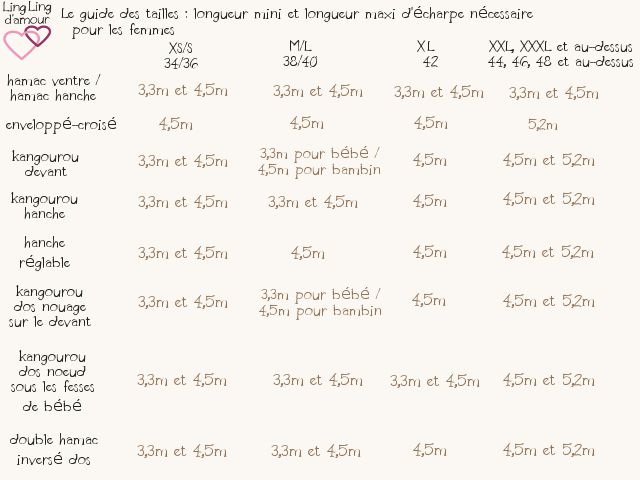 Ling Ling
d'amour
Le guide des tailles : longueur mini et longueur maxi d'écharpe nécessaire
pour les femmes
XS/S M/L XL XXL, XXXL et au-dessus
34/36 38/40 42 44, 46, 48 et au-dessus
hamac ventre /
hamac hanche
3,3m et 4,5m 3,3m et 4,5m 3,3m et 4,5m 3,3m et 4,5m
enveloppé-croisé 4,5m 4,5m 4,5m 5,2m
kangourou
devant
3,3m et 4,5m
3,3m pour bébé /
4,5m pour bambin
4,5m 4,5m et 5,2m
kangourou
hanche
3,3m et 4,5m 3,3m et 4,5m 4,5m 4,5m et 5,2m
hanche
réglable
3,3m et 4,5m 4,5m 4,5m 4,5m et 5,2m
kangourou
dos nouage
sur le devant
3,3m et 4,5m
3,3m pour bébé /
4,5m pour bambin
4,5m 4,5m et 5,2m
kangourou
dos noeud
sous les fesses
de bébé
3,3m et 4,5m 3,3m et 4,5m 3,3m et 4,5m 4,5m et 5,2m
double hamac
inversé dos
3,3m et 4,5m 3,3m et 4,5m 4,5m 4,5m et 5,2m